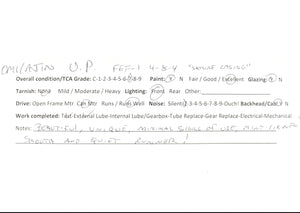 OMI/AJIN U.P FEF-1 4-8-4 "SKYLINE CASING"
Overall condition/TCA Grade: C-1-2-3-4-5-6-7-8-9 Paint: Y N Fair / Good / Excellent Glazing: Y N
Tarnish: None Mild / Moderate / Heavy Lighting: Front Rear Other:
Drive: Open Frame Mtr Can Mtr Runs / Runs Well Noise: Silent-1-2-3-4-5-6-7-8-9-Ouch! Backhead/Cab: Y N
Work completed: Test-External Lube-Internal Lube/Gearbox-Tube Replace Gear Replace-Electrical-Mechanical
Notes: BEAUTIFUL, UNIQUE, MINIMAL SIGNS OF USE,
SMOOTH AND QUIET RUNNER!